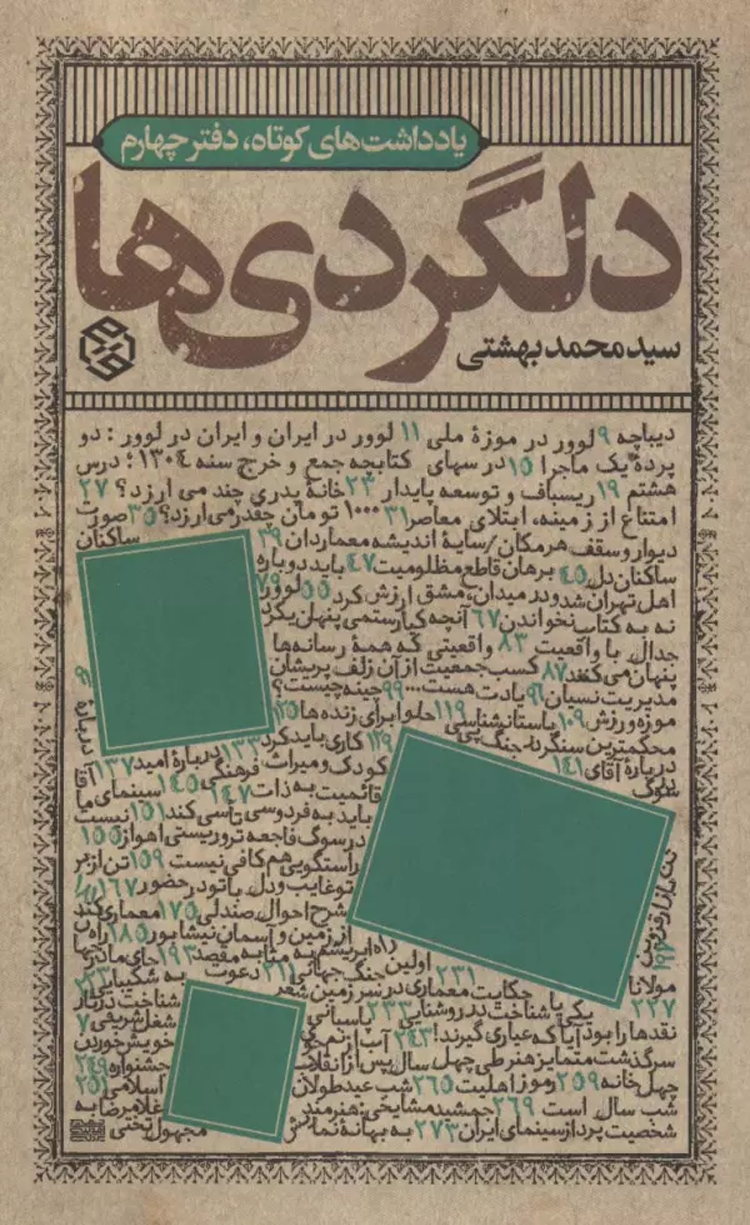 یادداشت‌های کوتاه، دفتر چهارم
دلگردی‌ها
سید محمد بهشتی
دیباچه ۹ لوور در موزۀ ملی ۱۱ لوور در ایران و ایران در لوور : دو
پردۀ یک ماجرا ۱۵ درسهای کتابچه جمع و خرج سنه ۱۳۰٤ ؛ درس
هشتم ۱۹ ریسباف و توسعه پایدار ۲۳ خانۀ پدری چند می ارزد؟ ۲۷
امتناع از زمینه، ابتلای معاصر ۳۱ ۱۰۰۰ تومان چقدر می‌ارزد؟ ۳۵ صورت
دیوار و سقف هر مکان / سایۀ اندیشه معماردان ۳۹ ساکنان
ساکنان دل ٤٥ برهان قاطع مظلومیت ٤۷ باید دوباره
اهل تهران شد و در میدان، مشق ارزش کرد ٥٥ لوور ۷۹
نه به کتاب نخواندن ٦۷ آنچه کیارستمی پنهان کرد
جدال با واقعیت ۸۳ واقعیتی که همۀ رسانه‌ها
پنهان می‌کنند ۸۷ کسب جمعیت از آن زلف پریشان
مدیریت نسیان ۹٦ یادت هست... ۹۹ چینه چیست؟
موزه و ورزش ۱۰۹ باستانشناسی ۱۱۹ حلوا برای زنده ها ۱۲٥
محکمترین سنگر در جنگ پی ۱۲۹ کاری باید کرد ۱۳۳ دربارۀ امید ۱۳۷ آقا
دربارۀ آقای ۱٤۱ کودک و میراث فرهنگی ۱٤٥ سینمای ما
سوگ قائمیت به ذات ۱٤۷
باید به فردوسی تأسی کند ۱٥۱ نیست
در سوگ فاجعه تروریستی اهواز ۱٥٥
راستگویی هم کافی نیست ۱٥۹ تن از بر
تو غایب و دل با تو در حضور ۱٦۷
شرح احوال صندلی ۱۷٥ معماری کند
از زمین و آسمان نیشابور ۱۸٥ راه
راه ابریشم به مثابه مقصد ۱۹۳ جای مادر
اولین جنگ جهانی ۲۱۱ دعوت به شکیبایی ۲۲۳
مولانا ۲۳۱ حکایت معماری در سرزمین شعر
۲۲۷ یکی با شناخت در روشنایی ۲۳۳ پاسبانی شناخت
نقدها را بود آیا که عیاری گیرند! ۲٤۳ آب از شغل شریفی
سرگذشت متمایز هنر طی چهل سال پس از انقلاب خویش خوردن
چهل خانه ۲٥۹ رموز اهلیت ۲٦٥ شب عید طولان جشنواره ۲٤۹
شب سال است ۲٦۹ جمشید مشایخی: هنرمند اسلامی ۲٥۱
شخصیت پرداز سینمای ایران ۲۷۳ به بهانۀ نمایش غلامرضا به
مجهول تختی